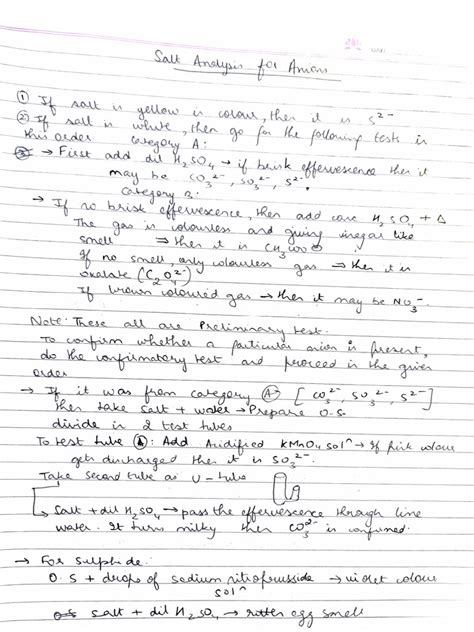 Salt Analysis for Anions
① If salt is yellow is colour, then it is S²⁻
② If salt is white, then go for the following tests in
this order
Category A:
③ → First add dil H₂SO₄ → if brisk effervescence then it
may be CO₃²⁻, SO₃²⁻, S²⁻.
Category B:
→ If no brisk effervescence, then add conc H₂SO₄ + Δ
The gas is colourless and giving vinegar like
smell ⇒ then it is CH₃COO⊖
If no smell, only colourless gas ⇒ then it is
oxalate (C₂O₄²⁻)
If brown coloured gas → then it may be NO₃⁻.
Note: These all are Preliminary test.
To confirm whether a particular anion is present,
do the confirmatory test and proceed in the given
order
→ If it was from category Ⓐ→ [CO₃²⁻, SO₃²⁻, S²⁻]
then take salt + water → Prepare O.S.
divide in 2 test tubes
To test tube ①: Add Acidified KMnO₄ solⁿ → If pink colour
gets discharged then it is SO₃²⁻.
Take second tube as U-tube
Salt + dil H₂SO₄ → pass the effervescence through lime
water. It turns milky then CO₃²⁻ is confirmed.
→ For Sulphide:
O.S + drops of sodium nitroprusside → violet colour
solⁿ
salt + dil H₂SO₄ → rotten egg smell